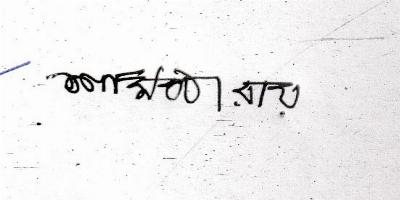 অনামিকা রায়